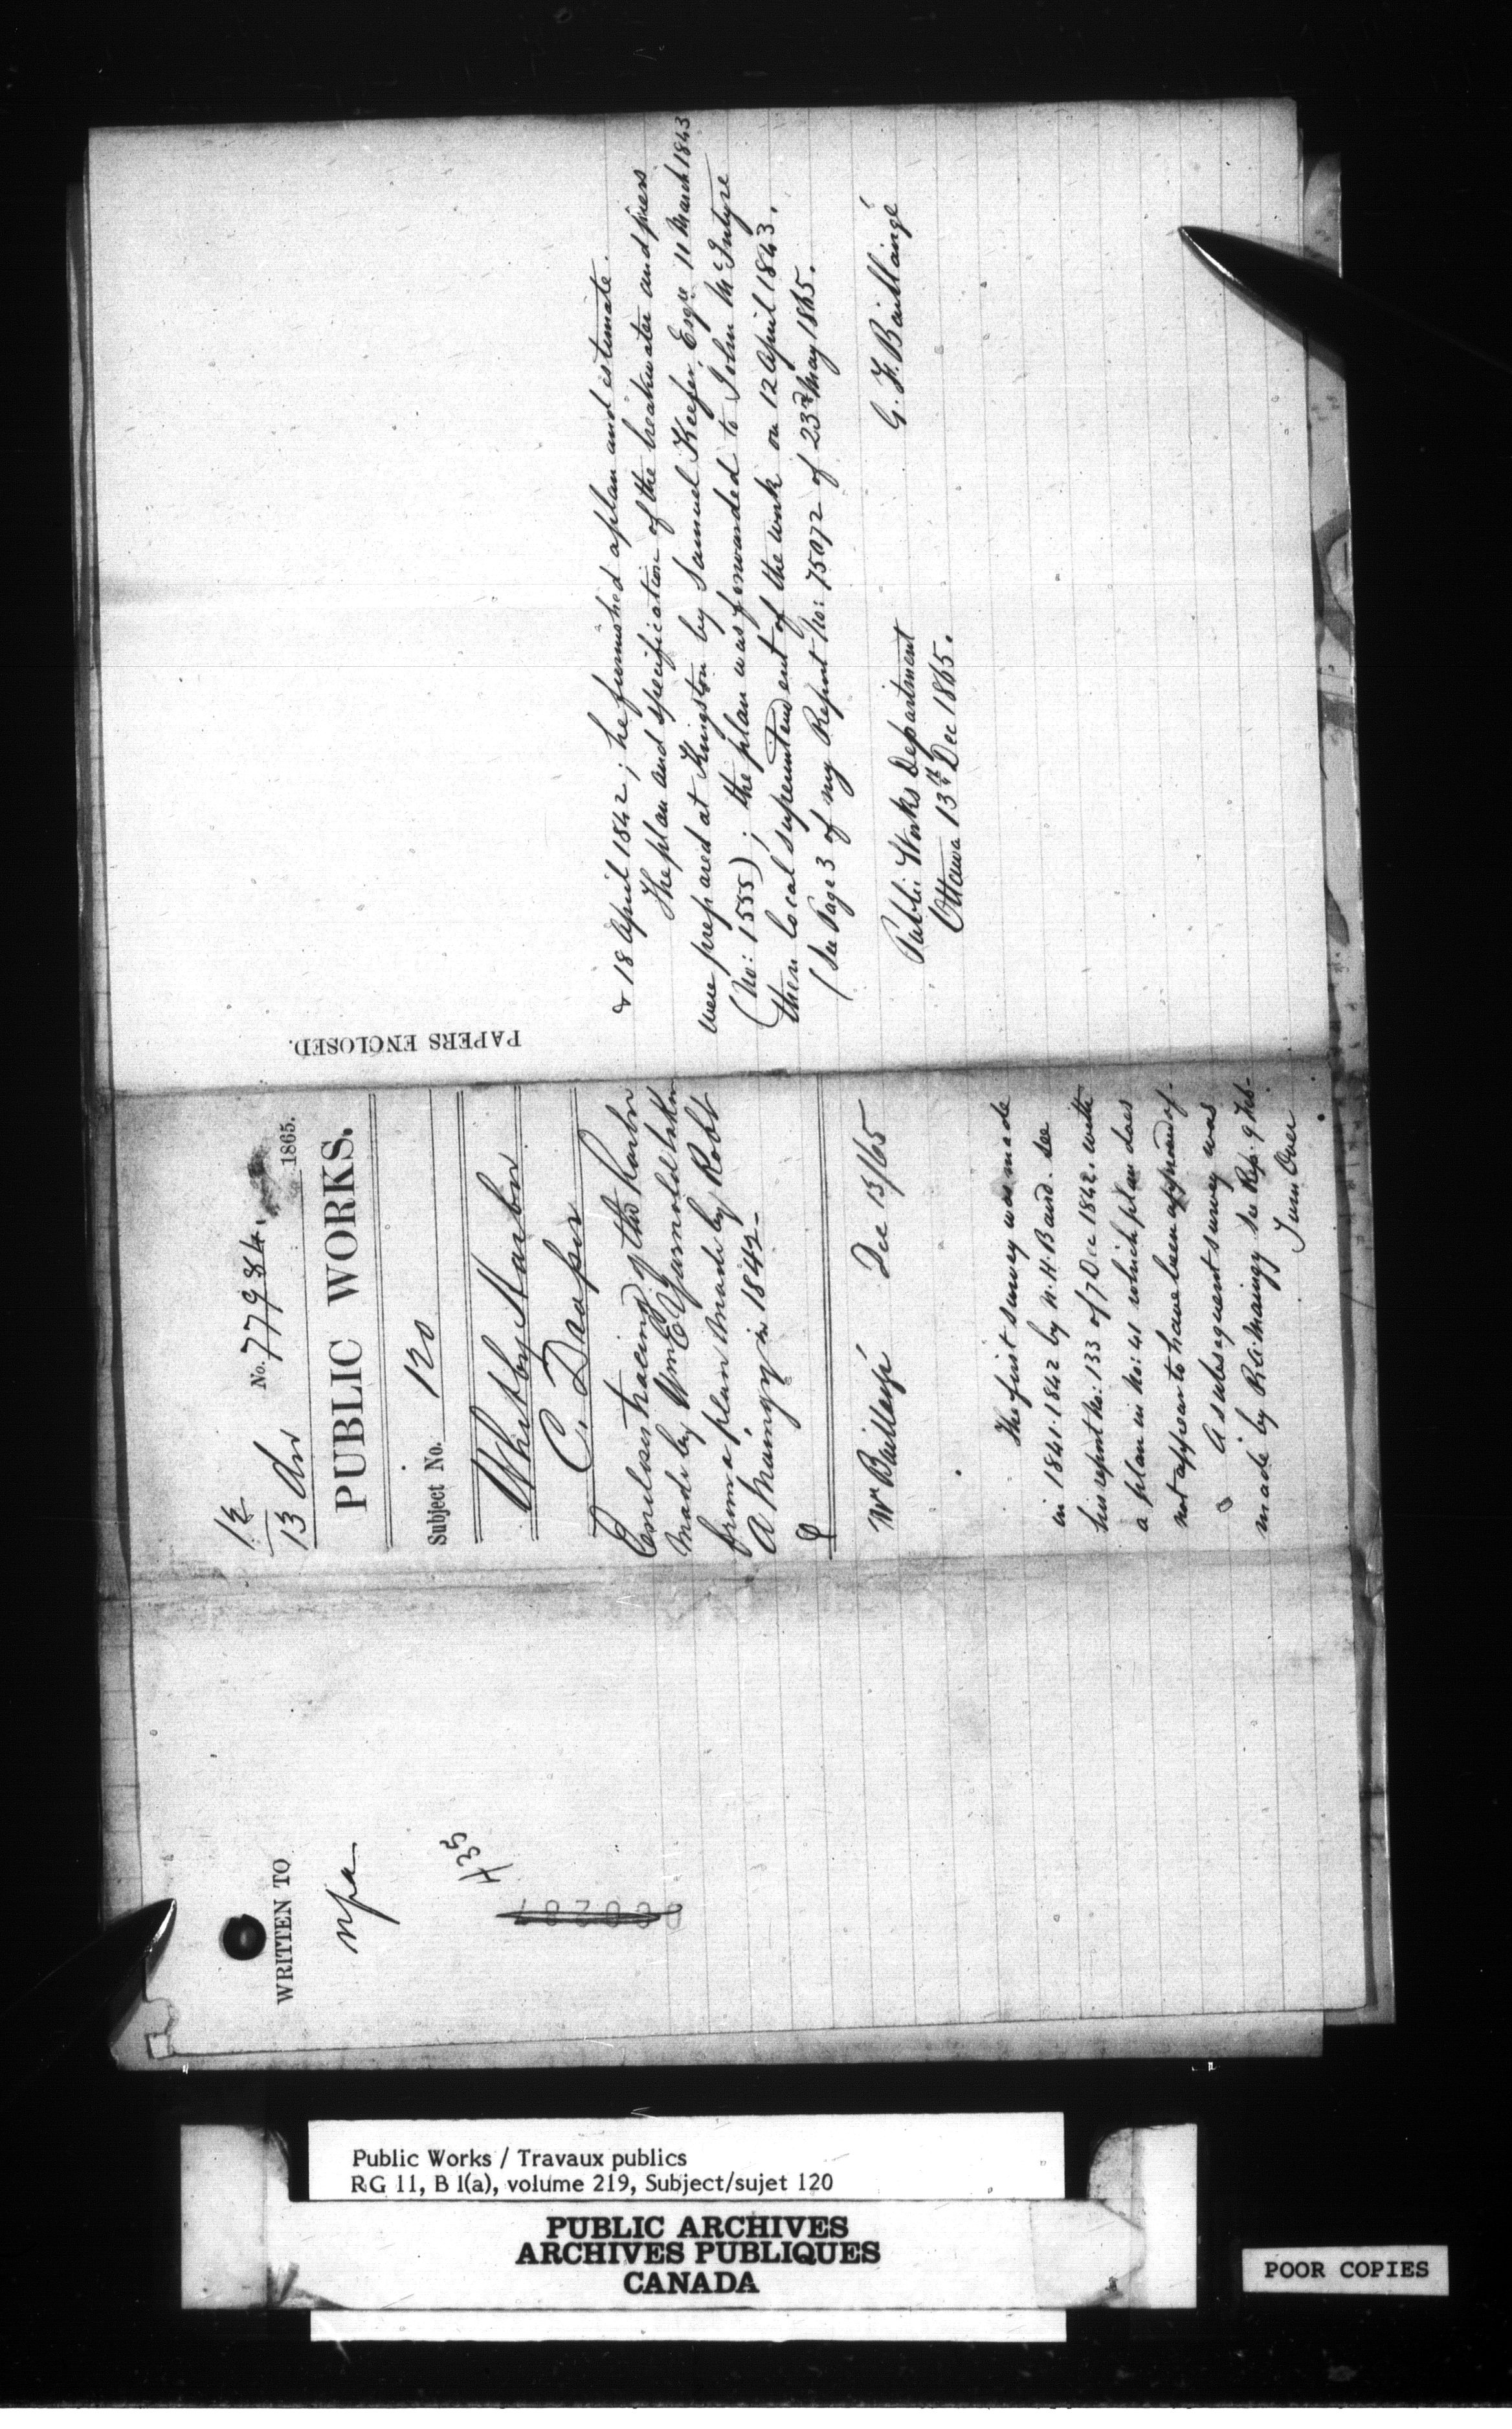 WRITTEN TO
npa
435
12
13 Dec
No. 77984.
1865.
PUBLIC WORKS.
Subject No. 120
Whitby Harbor
C. Draper
Encloses tracing of this harbor
made by Wm E Yarnold taken
from a plan made by Robt
A Maingy in 1842-
Mr Baillairgé Dec 13/65
The first survey was made
in 1841.1842 by N. H. Baird. See
his report No: 133 of 7 Dec 1842. with
a plan in No: 41 which plan does
not appear to have been approved of-
A subsequent survey was
made by R. A. Maingy see Rep. 9 Feb-
Turn Over
PAPERS ENCLOSED.
& 18 April 1842; he furnished a plan and estimate.
The plan and specification of the breakwater and piers
were prepared at Kingston by Samuel Keefer, Esqre 11 March 1843
(No: 1555); the plan was forwarded to John McIntyre
then local superintendent of the work on 12 April 1843.
(See Page 3 of my Report No: 75072 of 23rd May 1865.
Public Works Department
Ottawa 13th Dec 1865.
G. F. Baillairgé
Public Works / Travaux publics
RG 11, B 1(a), volume 219, Subject/sujet 120
PUBLIC ARCHIVES
ARCHIVES PUBLIQUES
CANADA
POOR COPIES